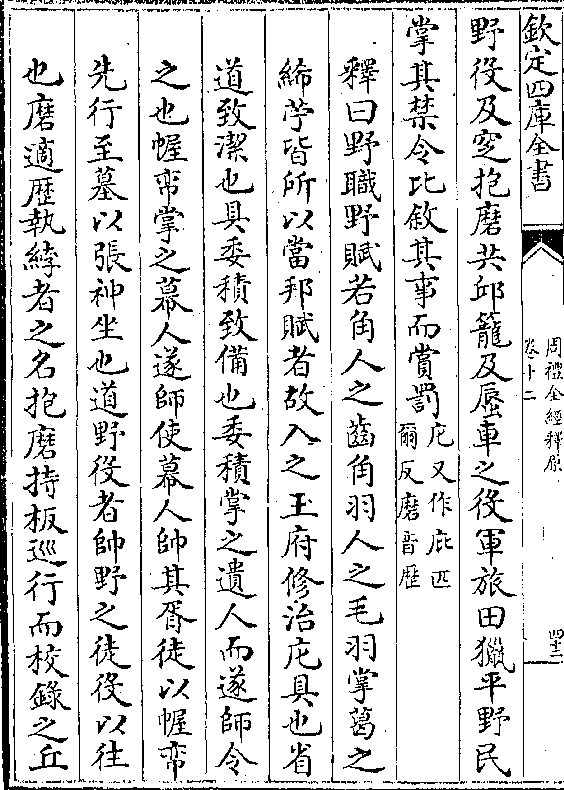 欽定四庫全書
周禮全經釋原
卷十二
四十二
野役及窆抱磨共邱籠及蜃車之役軍旅田獵平野民
掌其禁令比敘其事而賞罰庀又作庇匹
爾反磨音歷
釋曰野職野賦若角人之齒角羽人之毛羽掌葛之
絺苧皆所以當邦賦者故入之玉府修治庀具也省
道致潔也具委積致備也委積掌之遺人而遂師令
之也幄帟掌之幕人遂師使幕人帥其胥徒以幄帟
先行至墓以張神坐也道野役者帥野之徒役以往
也磨適歷執綍者之名抱磨持板巡行而校錄之丘